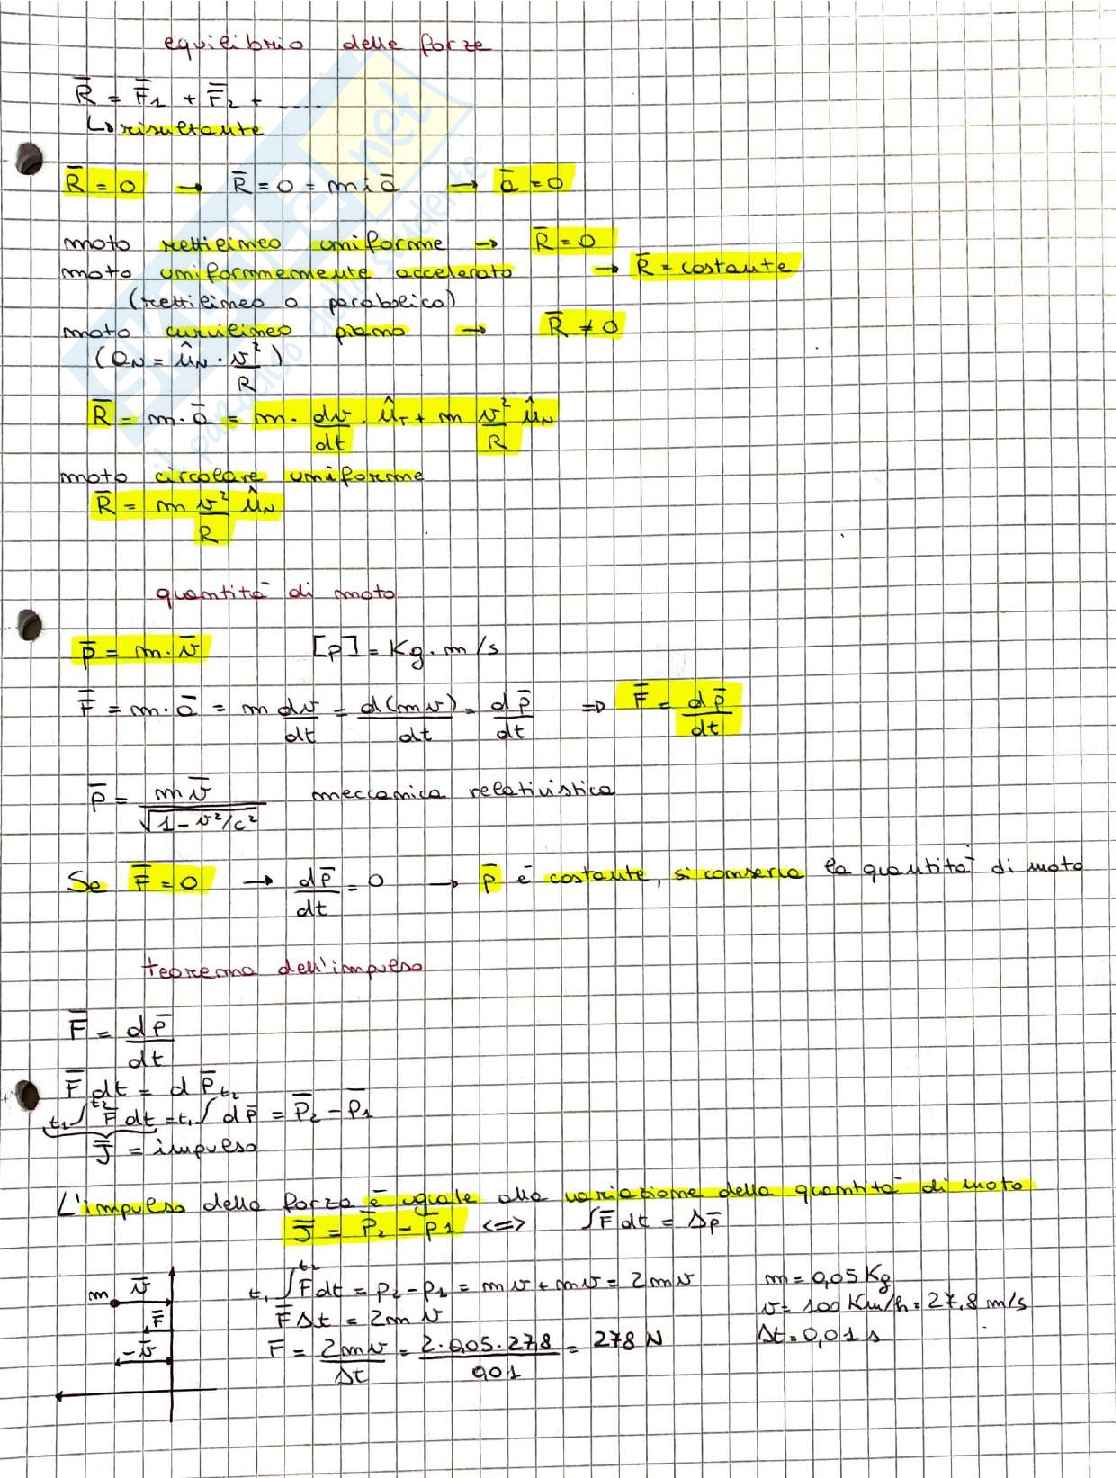 equilibrio delle forze
R̄ = F̄₁ + F̄₂ + .....
↳ risultante
R̄ = 0 → R̄ = 0 = m · ā → ā = 0
moto rettilineo uniforme → R̄ = 0
moto uniformemente accelerato → R̄ = costante
(rettilineo o parabolico)
moto curvilineo piano → R̄ ≠ 0
(a_N = û_N · v²/R)
R̄ = m · ā = m · dv/dt · û_T + m v²/R û_N
moto circolare uniforme
R̄ = m v²/R û_N
quantità di moto
p̄ = m · v̄ [p] = Kg · m/s
F̄ = m · ā = m dv/dt = d(mv)/dt = dp̄/dt ⇒ F̄ = dp̄/dt
p̄ = mv̄/√(1 - v²/c²) meccanica relativistica
Se F̄ = 0 → dp̄/dt = 0 → p̄ è costante, si conserva la quantità di moto
teorema dell'impulso
F̄ = dp̄/dt
F̄ dt = dp̄
t₁∫t₂ F̄ dt = t₁∫t₂ dp̄ = p̄₂ - p̄₁
J̄ = impulso
L'impulso della forza è uguale alla variazione della quantità di moto
J̄ = p̄₂ - p̄₁ <=> ∫F̄ dt = Δp̄
m v̄ F̄ -v̄
t₁∫t₂ F dt = p₂ - p₁ = mv + mv = 2mv m = 0,05 Kg
F̄ Δt = 2mv v = 100 Km/h = 27,8 m/s
F = 2mv/Δt = 2·0,05·27,8/0,01 = 278 N Δt = 0,01 s